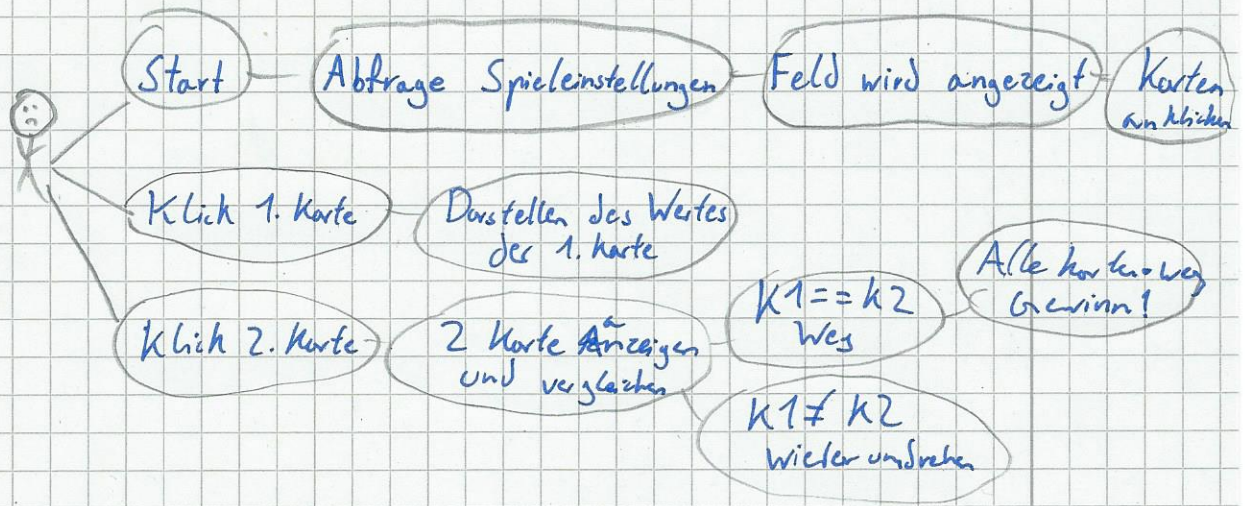 Start
Abfrage Spieleinstellungen
Feld wird angezeigt
Karten
anklicken
Klick 1. Karte
Darstellen des Wertes
der 1. Karte
Klick 2. Karte
2 Karte anzeigen
und vergleichen
K1==K2
Weg
Alle Karten weg
Gewinn!
K1≠K2
wieder umdrehen